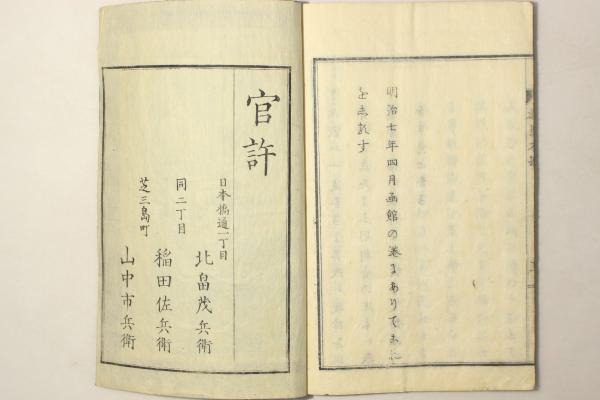 明治七年四月函館の巷にありてこれ
を志るす
官許
日本橋通一丁目
北畠茂兵衛
同二丁目
稲田佐兵衛
芝三島町
山中市兵衛